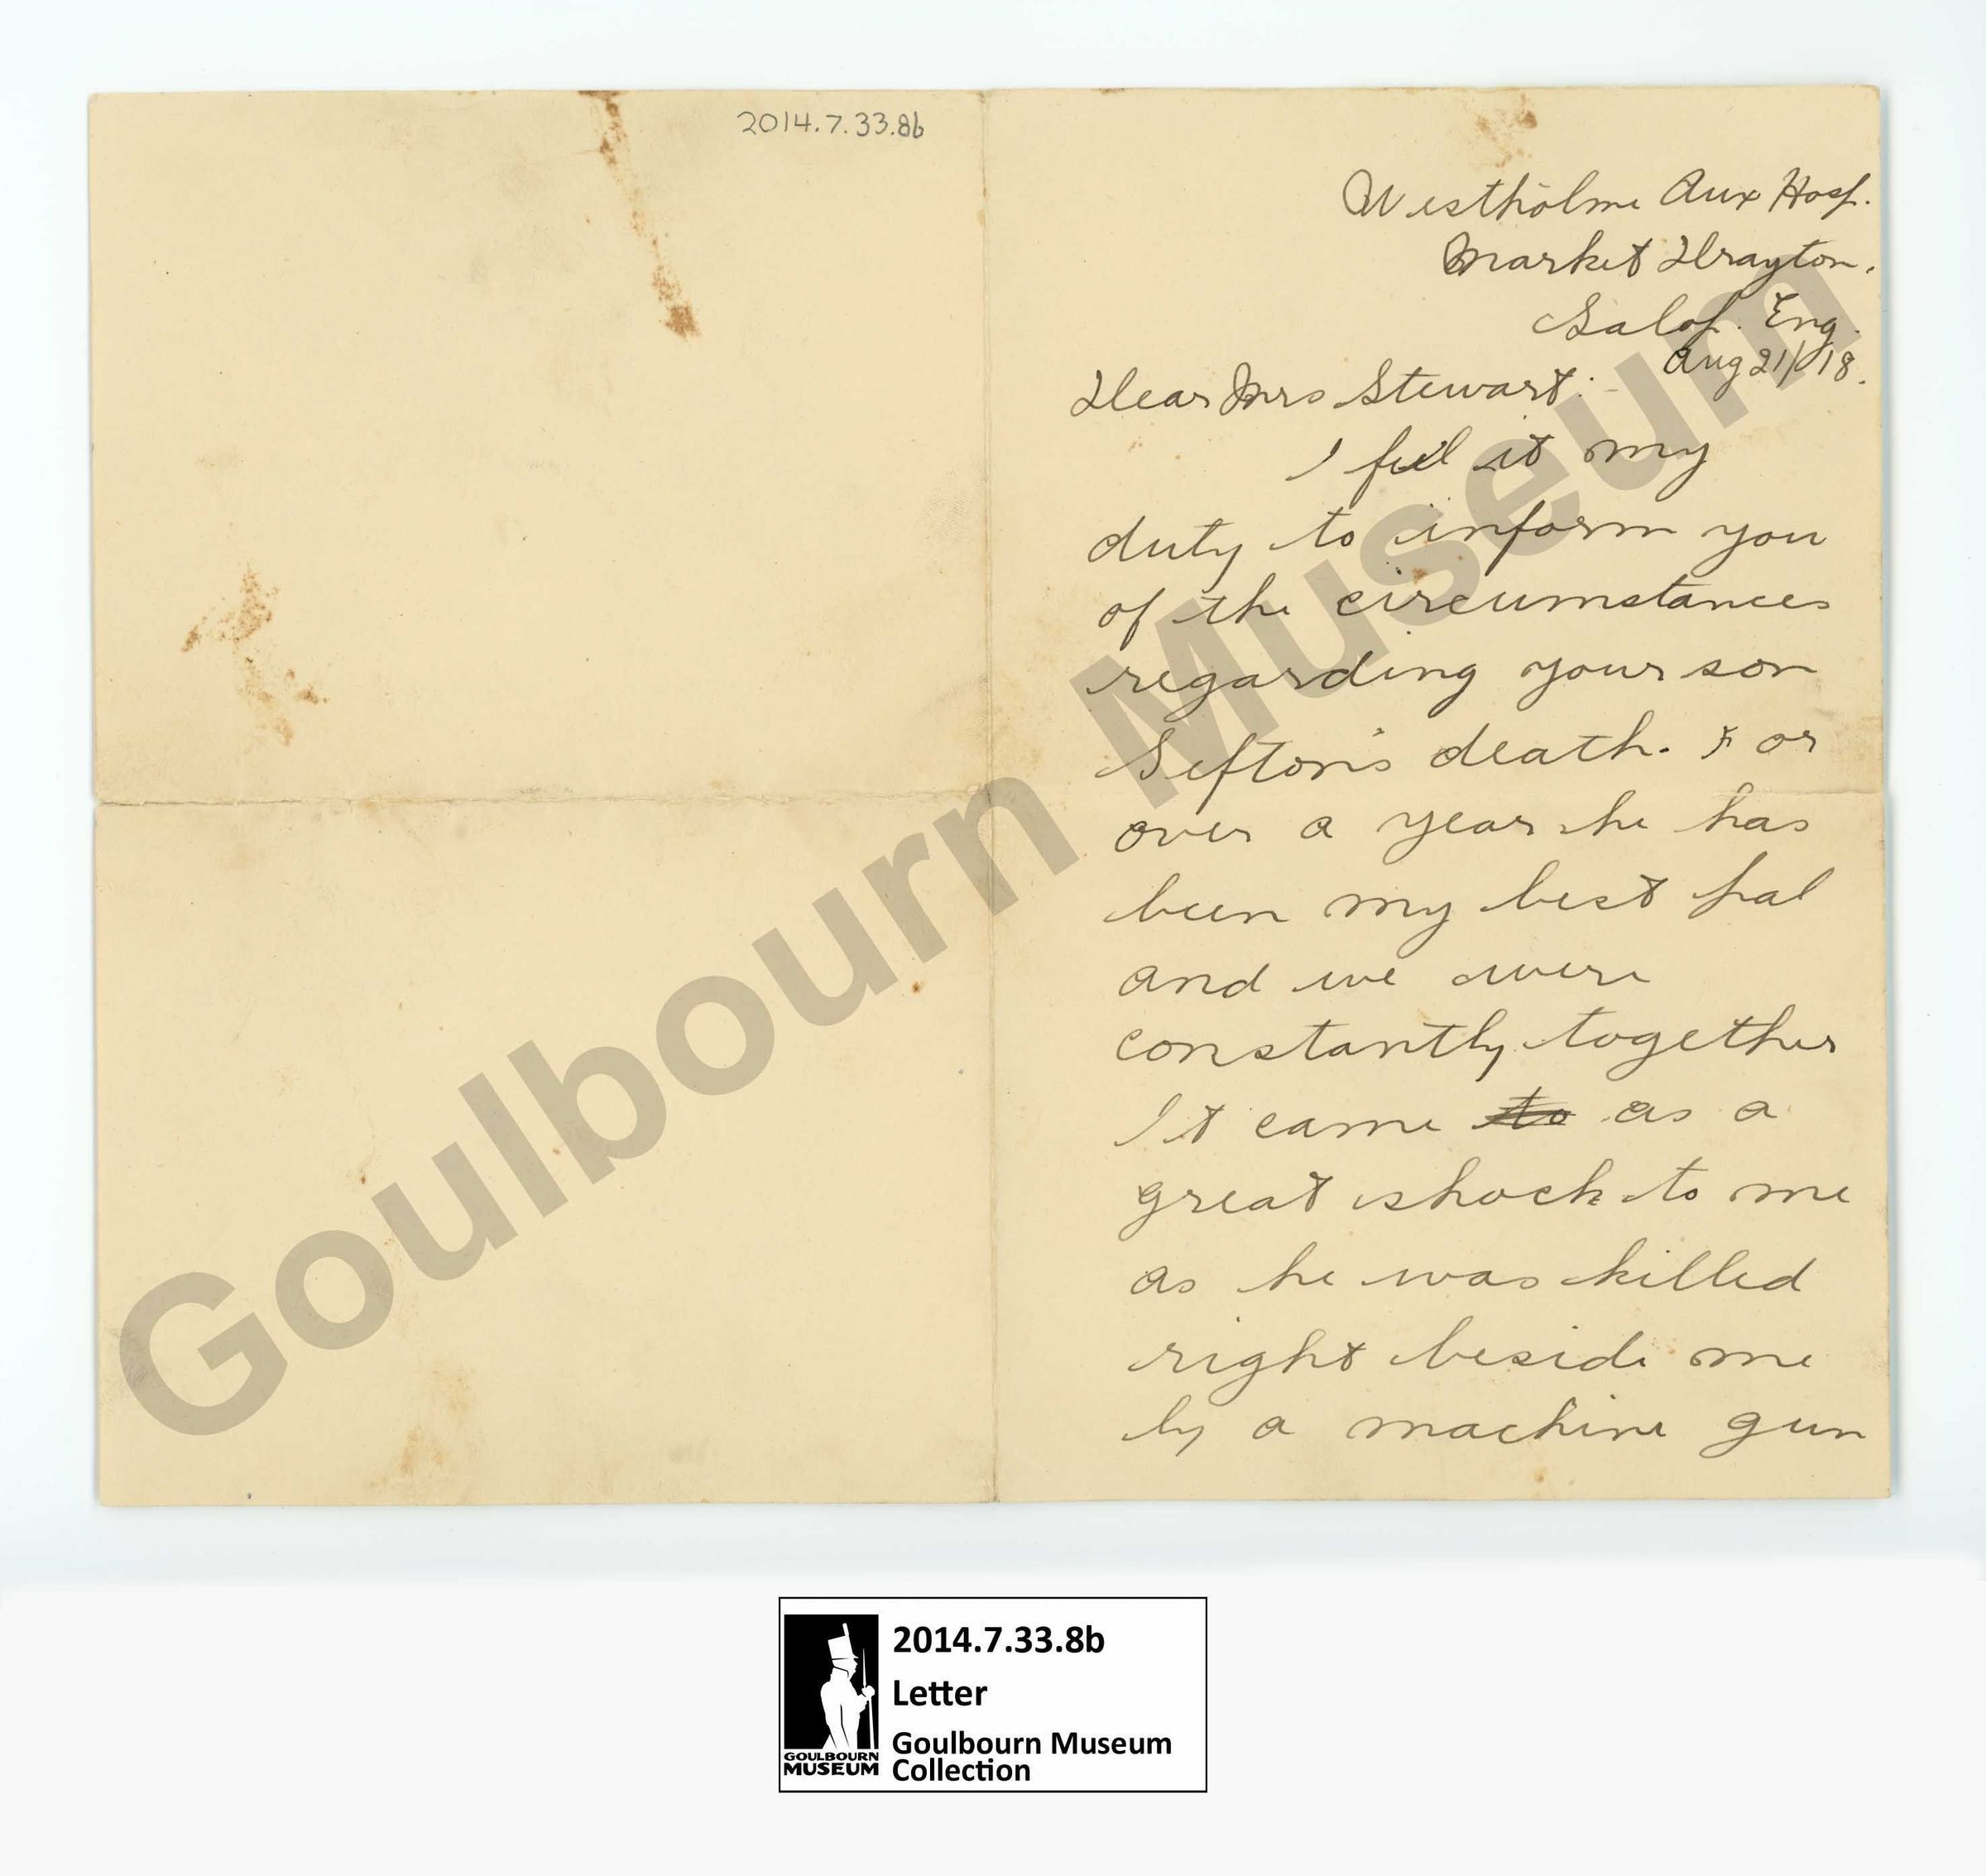 2014.7.33.8b
Westholme Aux Hosp.
Market Drayton.
Salop. Eng.
Aug 21/18.
Dear Mrs Stewart:-
I feel it my
duty to inform you
of the circumstances
regarding your son
Sefton's death. For
over a year he has
been my best pal
and we were
constantly together
It came to as a
great shock to me
as he was killed
right beside me
by a machine gun
Goulbourn Museum
2014.7.33.8b
Letter
Goulbourn Museum
Collection
GOULBOURN
MUSEUM